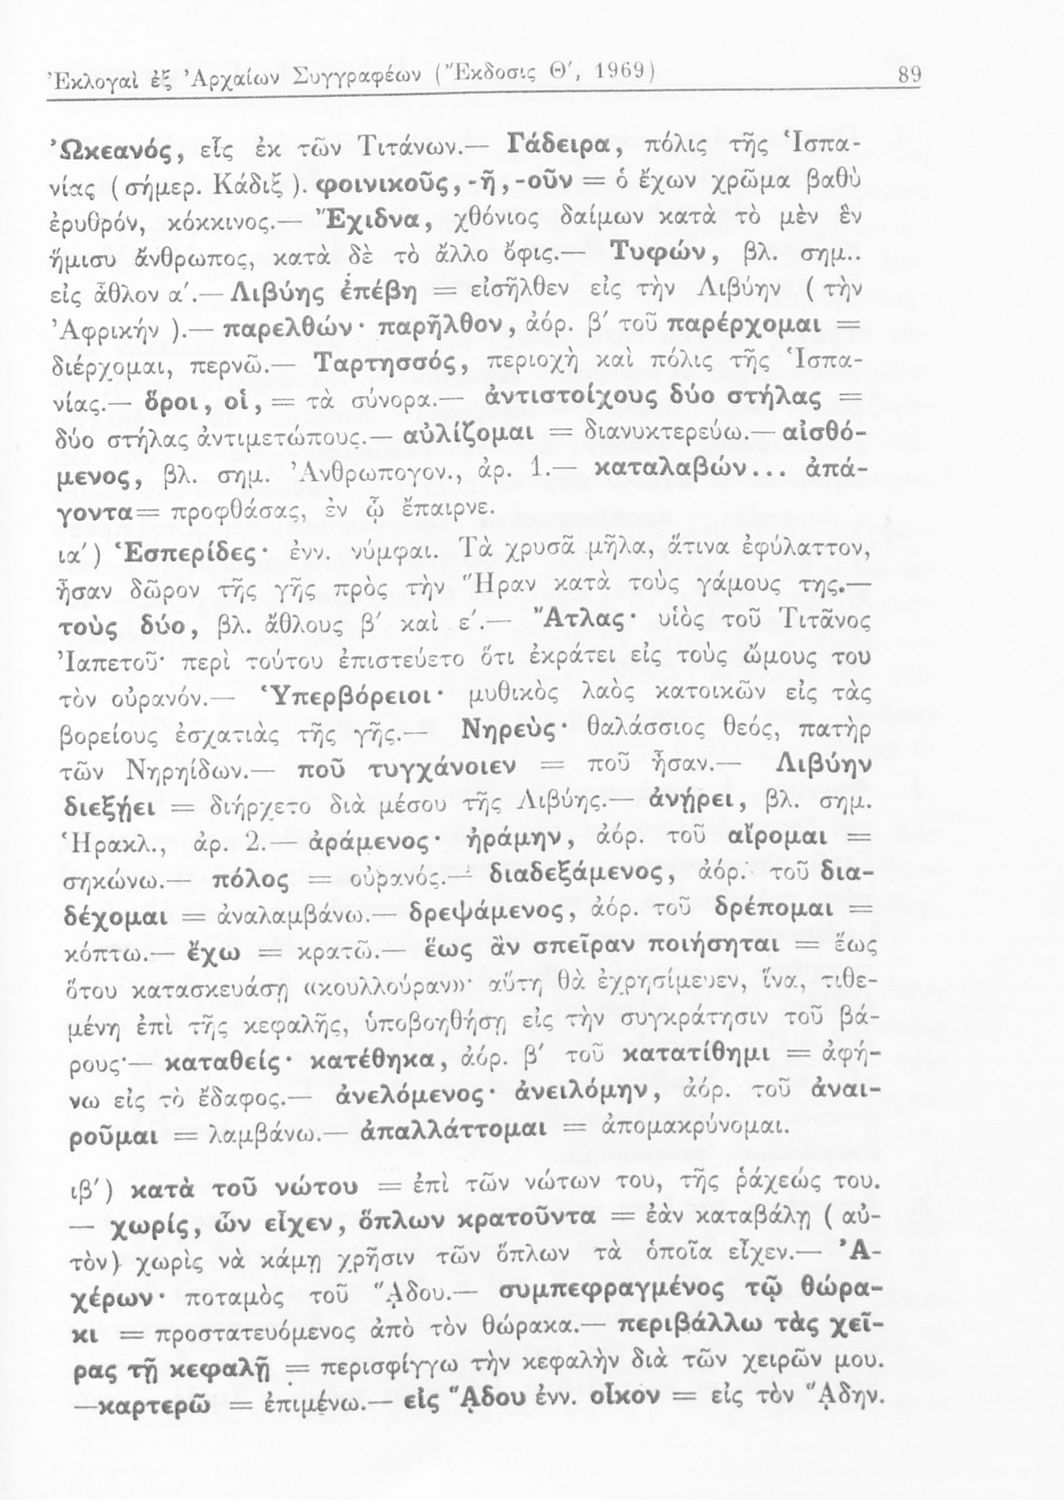 Ἐκλογαὶ ἐξ Ἀρχαίων Συγγραφέων (Ἔκδοσις Θ′, 1969) 89
Ὠκεανός, εἷς ἐκ τῶν Τιτάνων.— Γάδειρα, πόλις τῆς Ἱσπα-
νίας (σήμερ. Κάδιξ ). φοινικοῦς, -ῆ, -οῦν = ὁ ἔχων χρῶμα βαθὺ
ἐρυθρόν, κόκκινος.— Ἔχιδνα, χθόνιος δαίμων κατὰ τὸ μὲν ἓν
ἥμισυ ἄνθρωπος, κατὰ δὲ τὸ ἄλλο ὄφις.— Τυφών, βλ. σημ..
εἰς ἆθλον α′.— Λιβύης ἐπέβη = εἰσῆλθεν εἰς τὴν Λιβύην ( τὴν
Ἀφρικήν ).— παρελθών· παρῆλθον, ἀόρ. β′ τοῦ παρέρχομαι =
διέρχομαι, περνῶ.— Ταρτησσός, περιοχὴ καὶ πόλις τῆς Ἱσπα-
νίας.— ὅροι, οἱ, = τὰ σύνορα.— ἀντιστοίχους δύο στήλας =
δύο στήλας ἀντιμετώπους.— αὐλίζομαι = διανυκτερεύω.— αἰσθό-
μενος, βλ. σημ. Ἀνθρωπογον., ἀρ. 1.— καταλαβών... ἀπά-
γοντα = προφθάσας, ἐν ᾧ ἔπαιρνε.
ια′) Ἑσπερίδες· ἐνν. νύμφαι. Τὰ χρυσᾶ μῆλα, ἅτινα ἐφύλαττον,
ἦσαν δῶρον τῆς γῆς πρὸς τὴν Ἥραν κατὰ τοὺς γάμους της.—
τοὺς δύο, βλ. ἄθλους β′ καὶ ε′.— Ἄτλας· υἱὸς τοῦ Τιτᾶνος
Ἰαπετοῦ· περὶ τούτου ἐπιστεύετο ὅτι ἐκράτει εἰς τοὺς ὤμους του
τὸν οὐρανόν.— Ὑπερβόρειοι· μυθικὸς λαὸς κατοικῶν εἰς τὰς
βορείους ἐσχατιὰς τῆς γῆς.— Νηρεὺς· θαλάσσιος θεός, πατὴρ
τῶν Νηρηίδων.— ποῦ τυγχάνοιεν = ποῦ ἦσαν.— Λιβύην
διεξῄει = διήρχετο διὰ μέσου τῆς Λιβύης.— ἀνῄρει, βλ. σημ.
Ἡρακλ., ἀρ. 2.— ἀράμενος· ἠράμην, ἀόρ. τοῦ αἴρομαι =
σηκώνω.— πόλος = οὐρανός.— διαδεξάμενος, ἀόρ. τοῦ δια-
δέχομαι = ἀναλαμβάνω.— δρεψάμενος, ἀόρ. τοῦ δρέπομαι =
κόπτω.— ἔχω = κρατῶ.— ἕως ἂν σπεῖραν ποιήσηται = ἕως
ὅτου κατασκευάσῃ «κουλλούραν»· αὕτη θὰ ἐχρησίμευεν, ἵνα, τιθε-
μένη ἐπὶ τῆς κεφαλῆς, ὑποβοηθήσῃ εἰς τὴν συγκράτησιν τοῦ βά-
ρους·— καταθείς· κατέθηκα, ἀόρ. β′ τοῦ κατατίθημι = ἀφή-
νω εἰς τὸ ἔδαφος.— ἀνελόμενος· ἀνειλόμην, ἀόρ. τοῦ ἀναι-
ροῦμαι = λαμβάνω.— ἀπαλλάττομαι = ἀπομακρύνομαι.
ιβ′) κατὰ τοῦ νώτου = ἐπὶ τῶν νώτων του, τῆς ῥάχεώς του.
— χωρίς, ὧν εἶχεν, ὅπλων κρατοῦντα = ἐὰν καταβάλῃ ( αὐ-
τὸν) χωρὶς νὰ κάμῃ χρῆσιν τῶν ὅπλων τὰ ὁποῖα εἶχεν.— Ἀ-
χέρων· ποταμὸς τοῦ ᾍδου.— συμπεφραγμένος τῷ θώρα-
κι = προστατευόμενος ἀπὸ τὸν θώρακα.— περιβάλλω τὰς χεῖ-
ρας τῇ κεφαλῇ = περισφίγγω τὴν κεφαλὴν διὰ τῶν χειρῶν μου.
—καρτερῶ = ἐπιμένω.— εἰς ᾍδου ἐνν. οἶκον = εἰς τὸν ᾍδην.